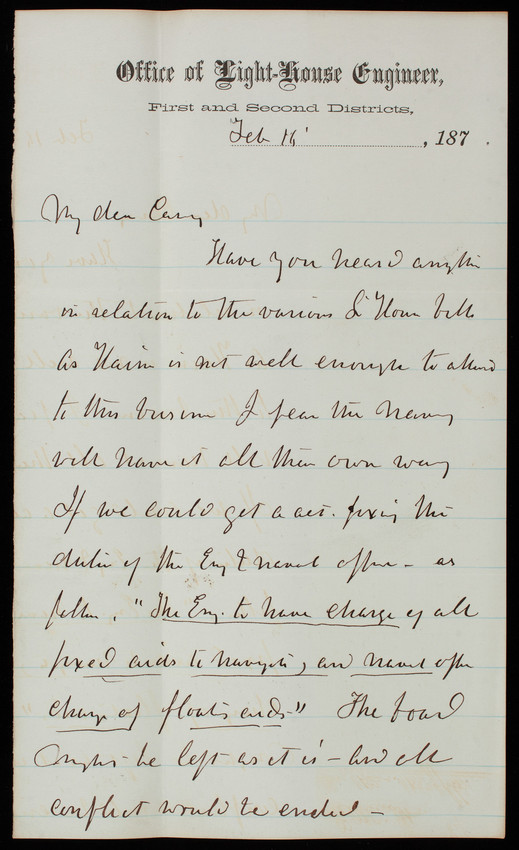 Office of Light-House Engineer,
First and Second Districts,
Feb 16 , 187 .
My dear Casey
Have you heard anythin
in relation to the various L House bills
As is not well enough to attend
to this business I fear the Navy
will have it all their own way
If we could get a act. fixing the
duties of the Eng & naval officer - as
follows. "The Eng. to have charge of all
fixed aids to navigation, and naval officer
charge of floating aids" The board
ought be left as it is - and all
conflict would be ended -